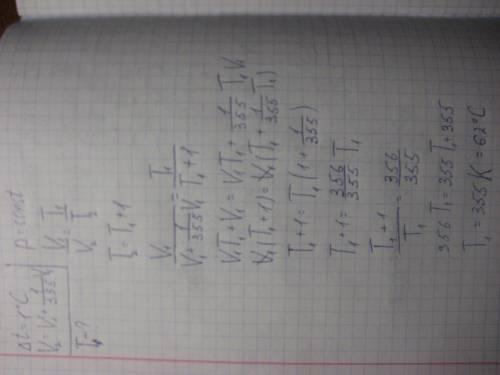 Δt = 1°C
V₂ = V₁ + 1/335 V₁
T₁ - ?
p = const
V₁/V₂ = T₁/T₂
T₂ = T₁ + 1
V₁/(V₁ + 1/355 V₁) = T₁/(T₁ + 1)
V₁T₁ + V₁ = V₁T₁ + 1/355 T₁V₁
V₁(T₁ + 1) = V₁(T₁ + 1/355 T₁)
T₁ + 1 = T₁(1 + 1/355)
T₁ + 1 = 356/355 T₁
(T₁ + 1)/T₁ = 356/355
356 T₁ = 355 T₁ + 355
T₁ = 355 K = 82°C